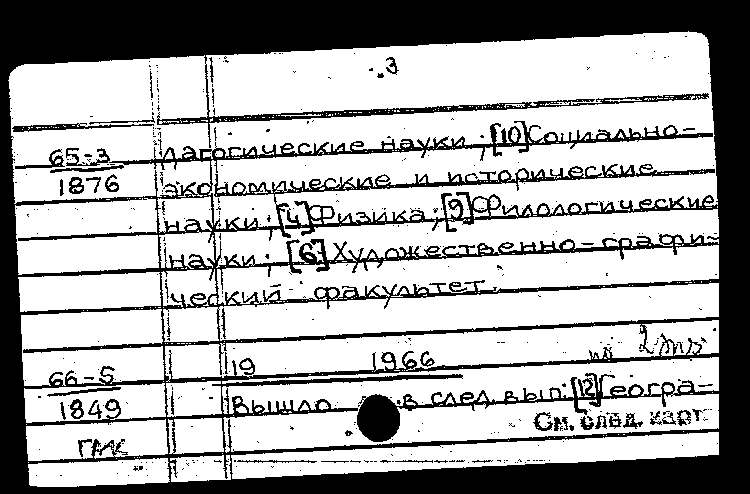 3
65-3 дагогические науки; [10] Социально-
1876 экономические и исторические
науки; [4] Физика; [9] Филологические
науки; [6] Художественно-графи-
ческий факультет.
19 1966
66-5
1849 Вышло в след. вып: [12] Геогра-
См. след. карт.